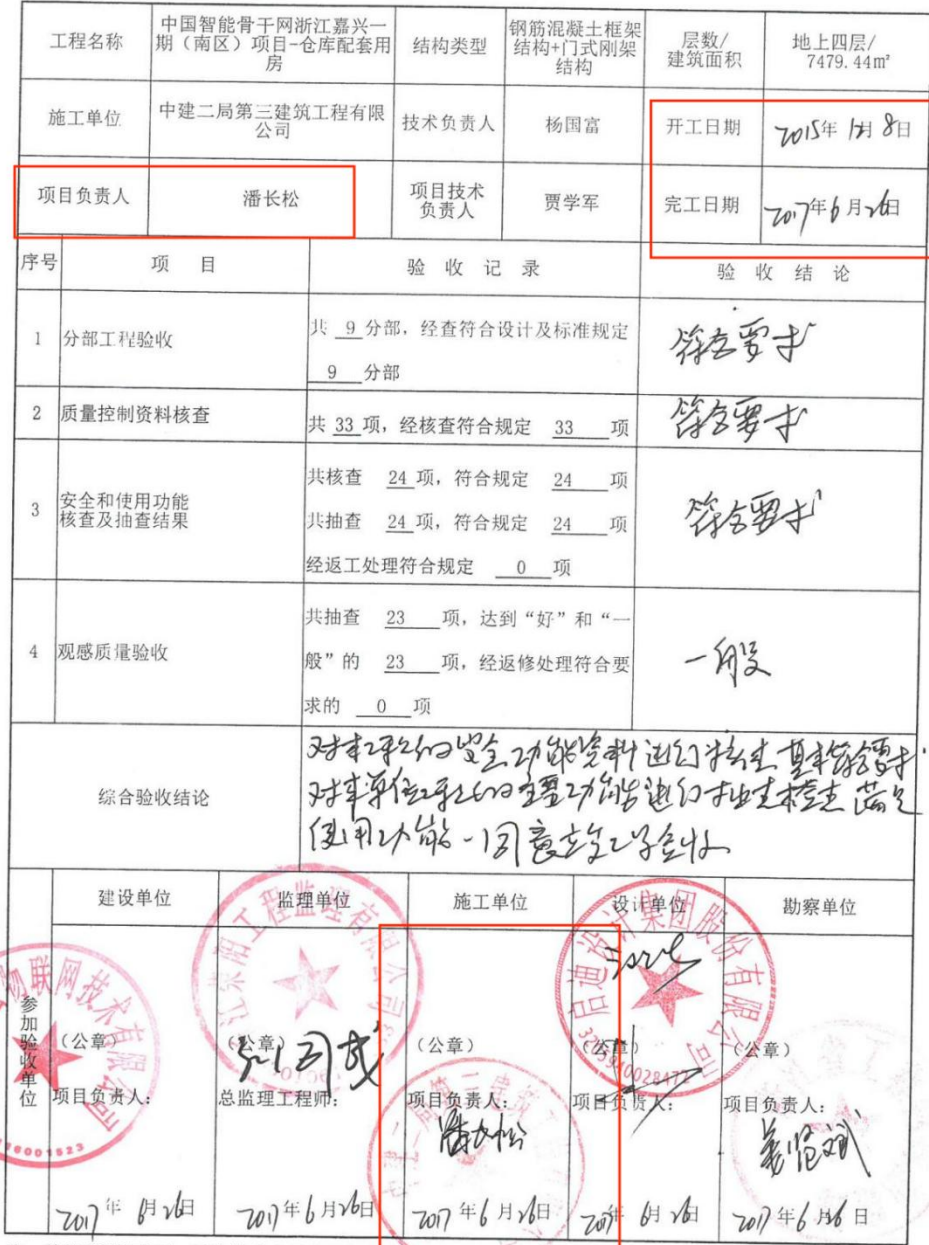 工程名称
中国智能骨干网浙江嘉兴一
期（南区）项目-仓库配套用
房
结构类型
钢筋混凝土框架
结构+门式刚架
结构
层数/
建筑面积
地上四层/
7479.44㎡
施工单位
中建二局第三建筑工程有限
公司
技术负责人
杨国富
开工日期
2015年12月8日
项目负责人
潘长松
项目技术
负责人
贾学军
完工日期
2017年6月26日
序号
项 目
验 收 记 录
验 收 结 论
1
分部工程验收
共 9 分部，经查符合设计及标准规定
9 分部
符合要求
2
质量控制资料核查
共 33 项，经核查符合规定 33 项
符合要求
3
安全和使用功能
核查及抽查结果
共核查 24 项，符合规定 24 项
共抽查 24 项，符合规定 24 项
经返工处理符合规定 0 项
符合要求
4
观感质量验收
共抽查 23 项，达到“好”和“一
般”的 23 项，经返修处理符合要
求的 0 项
一般
综合验收结论
对本工程的安全功能资料进行核查 基本符合要求
对本单位工程的主要功能进行抽查检查 满足
使用功能 一同意竣工验收
参加验收单位
建设单位
监理单位
施工单位
设计单位
勘察单位
（公章）
（公章）
（公章）
（公章）
（公章）
项目负责人：
总监理工程师：
项目负责人：
项目负责人：
项目负责人：
潘长松
2017年6月26日
2017年6月26日
2017年6月26日
2017年6月26日
2017年6月26日
物联网技术有限公司
工程监理有限公司
设计集团股份有限公司